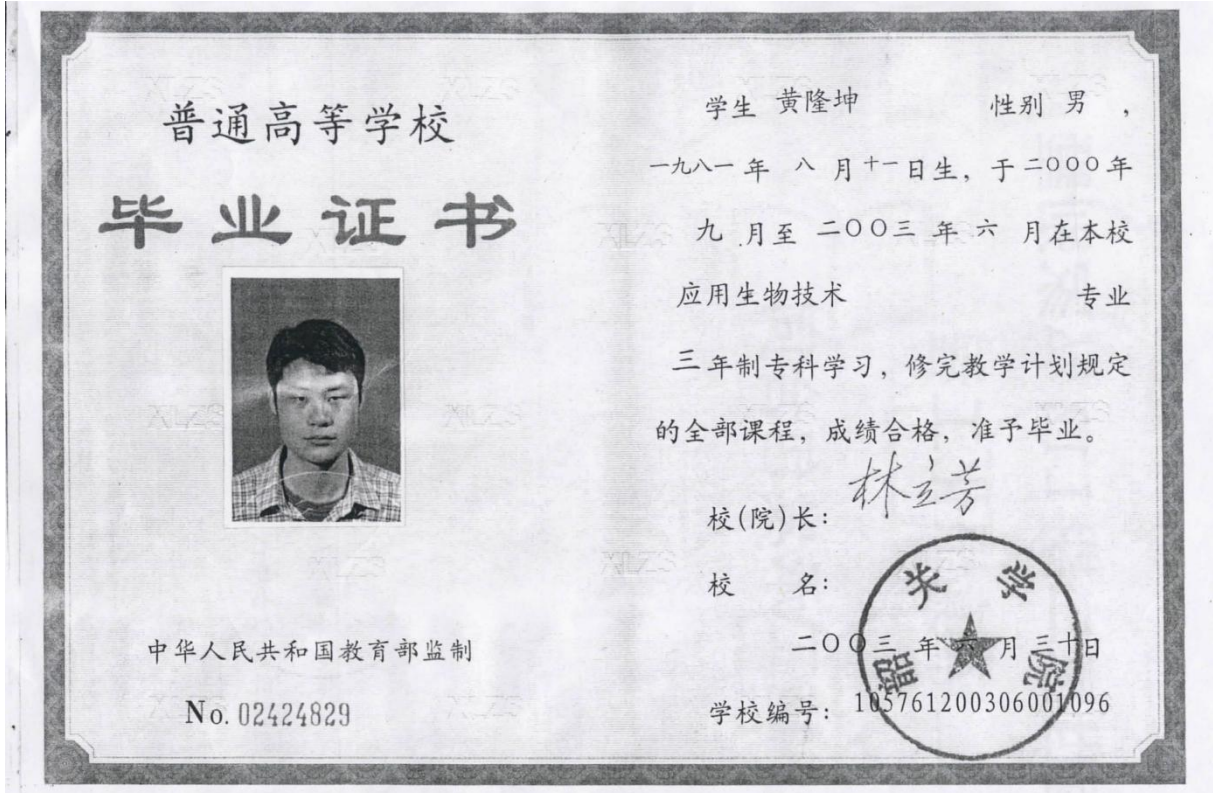 普通高等学校
毕业证书
中华人民共和国教育部监制
No. 02424829
学生 黄隆坤 性别 男 ,
一九八一 年 八 月 十一 日生, 于 二000 年
九 月至 二00三 年 六 月在本校
应用生物技术 专业
三 年制专科学习, 修完教学计划规定
的全部课程, 成绩合格, 准予毕业。
校(院)长: 林立芳
校 名: 韶关学院
二00三 年 六 月 三十日
学校编号: 105761200306001096